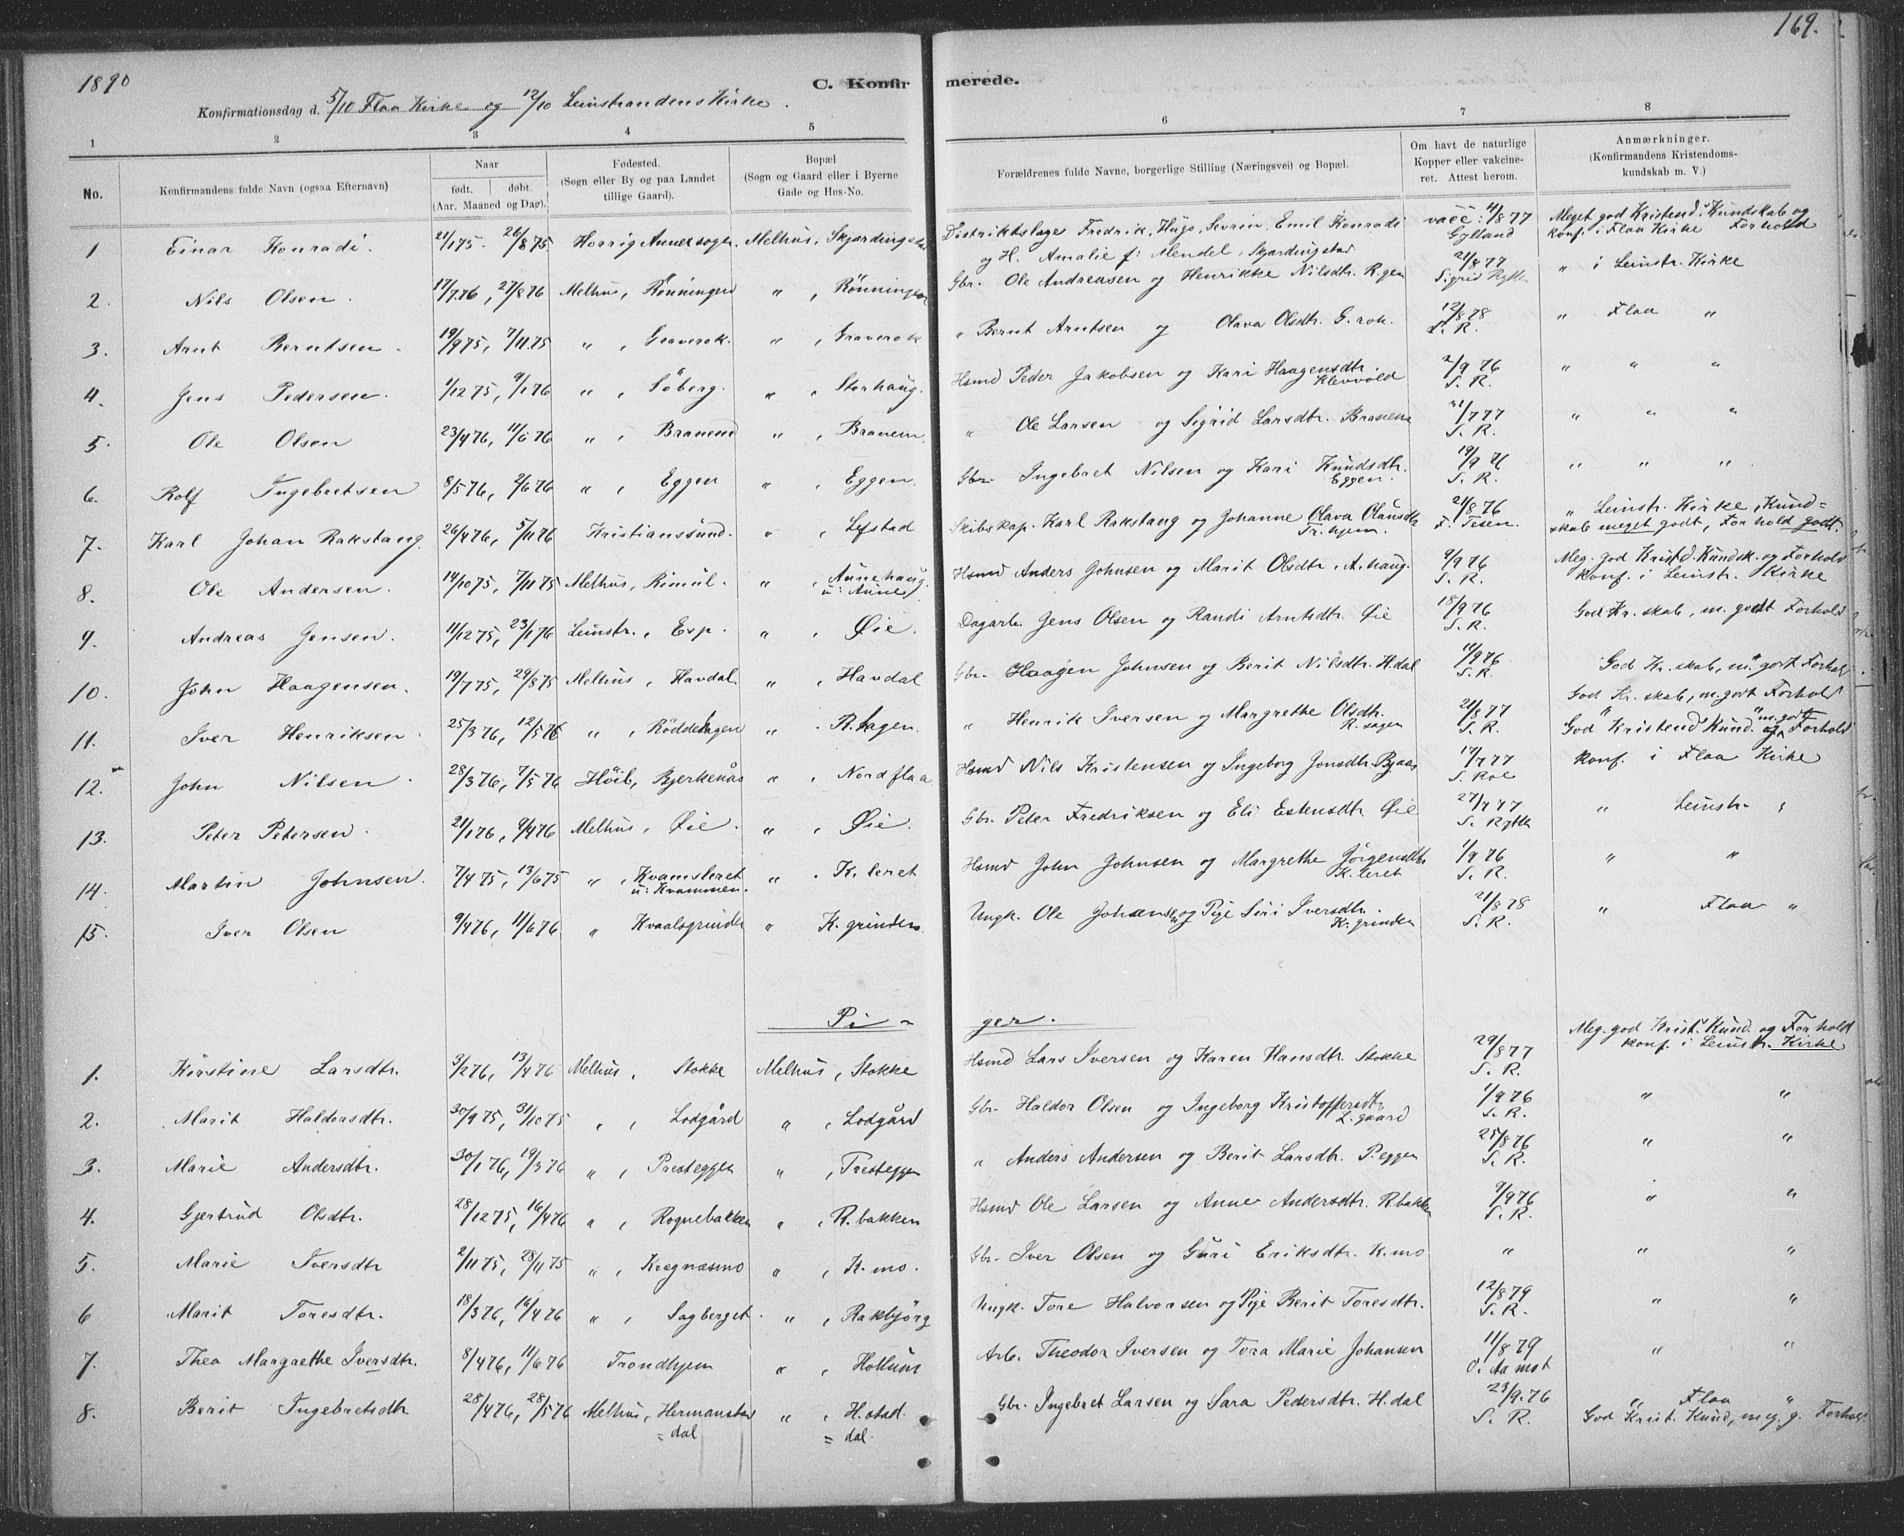 169.
1890
C. Konfirmerede.
Konfirmationsdag d. 5/10 Flaa Kirke og 12/10 Leinstrandens Kirke.
1 2 3 4 5 6 7 8
No. Konfirmandens fulde Navn (ogsaa Efternavn) Naar født. døbt. (Aar. Maaned og Dag). Fødested. (Sogn eller By og paa Landet tillige Gaard). Bopæl (Sogn og Gaard eller i Byerne Gade og Hus-No. Forældrenes fulde Navne, borgerlige Stilling (Næringsvei) og Bopæl. Om havt de naturlige Kopper eller vakcineret. Attest herom. Anmærkninger. (Konfirmandens Kristendomskundskab m. V.)
1 Einar Konradi. 21/1 75. 26/8 75 Annexsogn Melhus, Skjerdingstad Distriktslæge Fredrik, Hugo, Sevrin, Emil Konradi og H. Amalie f: Mendel, Skjerdingstad vacc: 4/8 77 Gylland Meget god Kristend. Kundskab og Forhold konf. i Flaa Kirke
2. Nils Olsen. 17/7 76, 27/8 76 Melhus, Rönningen " , Rönningen Gbr. Ole Andreasen og Henrikke Nilsdtr. R.gen 21/8 77 Sigrid Rytter " i Leinstr. Kirke
3. Arnt Berntsen. 19/9 75, 7/11 75 " , Graverok. " , Graverok " Bernt Arntsen og Olava Olsdtr. G.rok. 12/8 78 S. R. " Flaa "
4. Jens Pedersen. 1/12 75, 9/1 76 " , Söberg. " , Storhaug. Hsmd Peder Jakobsen og Kari Haagensdtr. Klevvold 2/9 76 S. R. " " "
5. Ole Olsen 23/4 76, 11/6 76 " , Branem " , Branem. " Ole Larsen og Sigrid Larsdtr. Branem 31/7 77 S. R. " " "
6. Rolf Ingebretsen 8/5 76, 2/6 76 " , Eggen " , Eggen. Gbr. Ingebret Nilsen og Kari Knudsdtr. Eggen 19/9 76 S. R. " " "
7. Karl Johan Rakstang 26/4 76, 5/11 76 Kristianssund. " , Lefstad Skibskap. Karl Rakstang og Johanne Olava Olausdtr Tr.hjem. 21/8 76 F. Tesen. " Leinstr. Kirke, Kundskab meget godt, Forhold godt.
8. Ole Andersen. 14/10 75, 7/11 75 Melhus, Rimul. " , Aunehaug. u: Aune Hsmd Anders Johnsen og Marit Olsdtr. A.haug. 9/9 76 S. R. Meg. god Kristd. Kundsk. og Forhold konf. i Leinstr. Kirke
9. Andreas Jensen. 11/12 75, 23/1 76 Leinstr., Esp. " , Øie. Dagarb. Jens Olsen og Randi Arntsdtr. Øie 18/9 76 S. R. God Kr. skab, m. godt Forhold
10. John Haagensen. 19/7 75, 29/8 75 Melhus, Havdal. " , Havdal Gbr. Haagen Johnsen og Berit Nilsdtr. H.dal 11/9 76 S. R. God Kr. skab, m. godt Forhold
11. Iver Henriksen. 25/3 76, 12/5 76 " , Röddehagen " . R.hagen. " Henrik Iversen og Margrethe Olsdtr. 21/8 77 S. R. God Kr. skab, m. godt Forhold
12. John Nilsen. 28/3 76, 7/5 76 Höil., Bjerkenås " , Nordflaa Hsmd Nils Kristensen og Ingeborg Jonsdtr. 17/7 77 God Kristend Kund. og m. godt Forhold konf. i Flaa Kirke
13. Peter Petersen. 21/1 76, 9/4 76 Melhus, Øie. " , Øie. Gbr. Peter Fredriksen og Eli Estensdtr. Øie 27/7 77 S. Rytter " Leinstr. "
14. Martin Johnsen. 7/4 75, 13/6 75 " , Kvamsleret u: Kvammen. " . K.leret Hsmd John Johnsen og Margrethe Jörgensdtr K.leret 1/9 76 S. R. " "
15. Iver Olsen 9/4 76, 11/6 76 " Kvaalsgrinden " K.grinden. Ungk. Ole Johansen og Pige Siri Iversdtr. K.grinden 21/8 78 S. R. " Flaa "
Piger.
1. Kirstine Larsdtr. 3/2 76, 13/4 76 Melhus, Stokke Melhus, Stokke Hsmd Lars Iversen og Karen Hansdtr. Stokke 29/8 77 S. R. Meg. god Krist. Kund. og Forhold konf. i Leinstr. Kirke
2. Marit Haldorsdtr. 30/9 75, 31/10 75 " , Lodgård " , Lodgård Gbr. Haldor Olsen og Ingeborg Kristoffersdtr L.gaard 1/9 76 S. R. " "
3. Marie Andersdtr. 30/1 76, 19/3 76 " , Presteggen " , Presteggen " Anders Andersen og Berit Larsdtr. P.eggen 25/8 76 S. R. " "
4. Gjertrud Olsdtr. 28/12 75, 16/4 76 " , Rognebakken " , R.bakken Hsmd Ole Larsen og Anne Andersdtr. R.bakken 9/9 76 S. R. " "
5. Marie Iversdtr 2/11 75, 28/11 75 " , Kregnæsmo " , K.mo. Gbr. Iver Olsen og Guri Eriksdtr. K.mo " " "
6 Marit Toresdtr. 18/3 76, 16/4 76 " , Sagberget. " , Rakbjörg Ungk. Tore Halvorsen og Pige Berit Toresdtr. 12/8 79 S. R. " "
7. Thea Margrethe Iversdtr. 8/4 76, 11/6 76 Trondhjem " , Hollum Arb. Theodor Iversen og Tora Marie Johansen 11/8 79 O. Aamot " "
8. Berit Ingebretsdtr 28/4 76, 28/5 76 Melhus, Hermanstad=dal " , H.stad=dal. Gbr. Ingebret Larsen og Sara Pedersdtr. H.dal 23/9 76 S. R. " Flaa " God Krist. Kund, meg. g. Forhold.